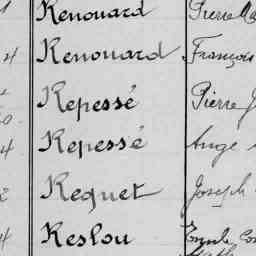 Renouard Pierre
4 Renouard François
Repessé Pierre J
4 Repessé Ange
2 Requet Joseph
4 Reslou